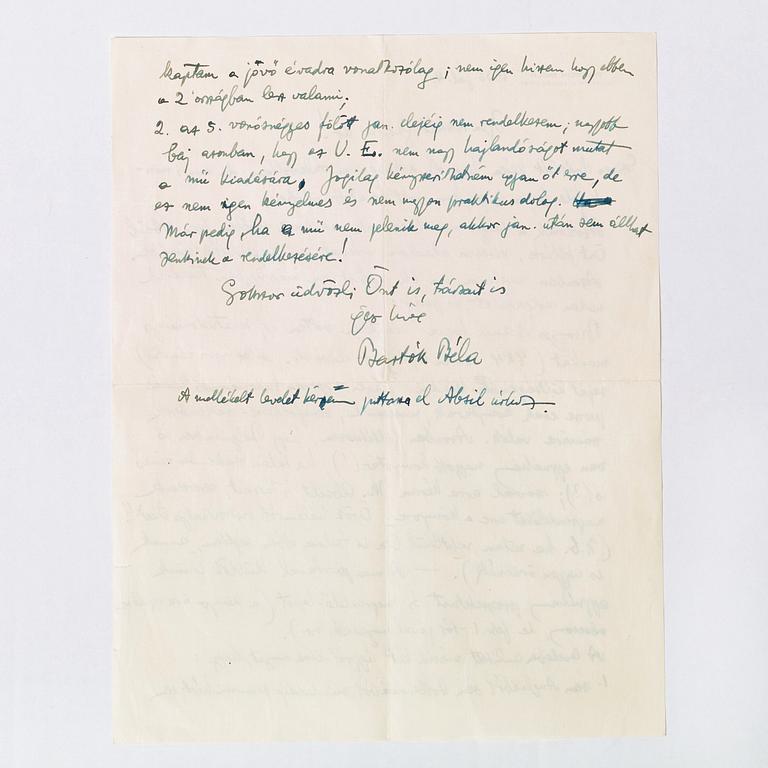 kaptam a jövő évadra vonatkozólag; nem igen hiszem hogy ebben
a 2 országban lesz valami;
2. az 5. vonósnégyes fölött jan. elejéig nem rendelkezem; nagyobb
baj azonban, hogy az U. E. nem nagy hajlandóságot mutat
a mű kiadására. Jogilag kényszeríthetném ugyan őt erre, de
ez nem igen kényelmes és nem nagyon praktikus dolog.
Már pedig, ha a mű nem jelenik meg, akkor jan. után sem állhat
senkinek a rendelkezésére!
Sokszor üdvözli Önt is, társait is
igaz híve
Bartók Béla
A mellékelt levelet kérem juttassa el Absil úrhoz.